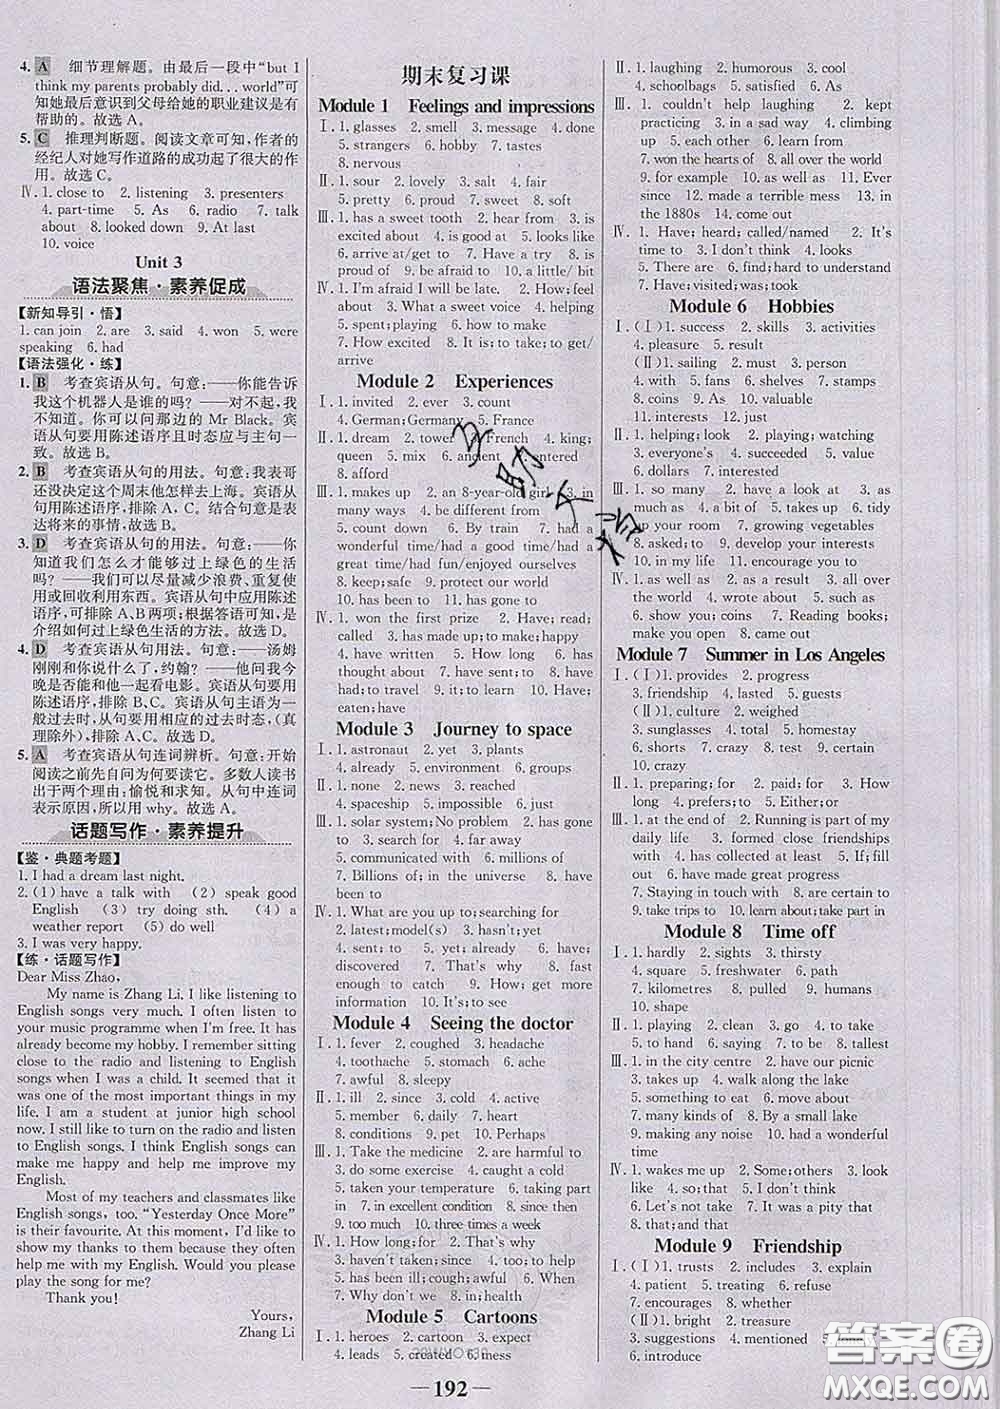 4. A 细节理解题。由最后一段中“but I
think my parents probably did. . . world”可
知她最后意识到父母给她的职业建议是有
帮助的。故选 A。
5. C 推理判断题。阅读文章可知,作者的
经纪人对她写作道路的成功起了很大的作
用。故选 C。
Ⅳ. 1. close to 2. listening 3. presenters
4. part-time 5. As 6. radio 7. talk
about 8. looked down 9. At last
10. voice
Unit 3
语法聚焦·素养促成
【新知导引·悟】
1. can join 2. are 3. said 4. won 5. were
speaking 6. had
【语法强化·练】
1. B 考查宾语从句。句意:——你能告诉
我这个机器人是谁的吗? ——对不起,我
不知道。你可以问那边的 Mr Black。宾
语从句要用陈述语序且时态应与主句一
致。故选 B。
2. B 考查宾语从句的用法。句意:我表哥
还没决定这个周末他怎么去上海。宾语从
句用陈述语序,排除 A、C。结合句意是表
达将来的事情,故选 B。
3. D 考查宾语从句的用法。句意:——你
知道我们怎么才能够过上绿色的生活
吗? ——我们可以尽量减少浪费、重复利
用或回收利用东西。宾语从句中应用陈述
语序,可排除 A、B 两项;根据答语可知,是
介绍如何过上绿色生活的方法。故选 D。
4. D 考查宾语从句用法。句意:——汤姆
刚刚和你说什么了,约翰? ——他问我今
晚是否能和他一起看电影。宾语从句要用
陈述语序,排除 B、C。宾语从句主语为一
般过去时,从句要用相应的过去时态,(真
理除外),排除 A。故选 D。
5. A 考查宾语从句连词辨析。句意:开始
阅读之前先自问为何要读它。多数人读书
出于两个理由:愉悦和求知。从句中连词
表示原因,所以用 why。故选 A。
话题写作·素养提升
【鉴·典题考题】
1. I had a dream last night.
2. (1) have a talk with (2) speak good
English (3) try doing sth. (4) a
weather report (5) do well
3. I was very happy.
【练·话题写作】
Dear Miss Zhao,
My name is Zhang Li. I like listening to
English songs very much. I often listen to
your music programme when I'm free. It has
already become my hobby. I remember sitting
close to the radio and listening to English
songs when I was a child. It seemed that it
was one of the most important things in my
life. I am a student at junior high school
now. I still like to turn on the radio and listen
to English songs. I think English songs can
make me happy and help me improve my
English.
Most of my teachers and classmates like
English songs, too. “Yesterday Once More”
is their favourite. At this moment, I'd like to
show my thanks to them because they often
help me with my English. Would you please
play the song for me?
Thank you!
Yours,
Zhang Li
期末复习课
Module 1 Feelings and impressions
Ⅰ. 1. glasses 2. smell 3. message 4. done
5. strangers 6. hobby 7. tastes
8. nervous
Ⅱ. 1. sour 2. lovely 3. salt 4. fair
5. pretty 6. proud 7. sweet 8. soft
Ⅲ. 1. has a sweet tooth 2. hear from 3. is
excited about 4. is good at 5. looks like
6. arrive at/get to 7. Have a try 8. is
proud of 9. be afraid of 10. a little/ bit
Ⅳ. 1. I'm afraid I will be late. 2. How; feel
about 3. What a sweet voice 4. helping
5. spent; playing 6. how to make
7. How excited 8. It is; to take; to get/
arrive
Module 2 Experiences
Ⅰ. 1. invited 2. ever 3. count
4. German;Germany 5. France
Ⅱ. 1. dream 2. tower French 4. king;
queen 5. mix 6. ancient entered
8. afford
Ⅲ. 1. makes up 2. an 8-year-old girl 3. in
many ways 4. be different from
5. count down 6. By train 7. had a
wonderful time/had a good time/had a
great time/had fun/enjoyed ourselves
8. keep; safe 9. protect our world
10. has been to 11. has gone to
Ⅳ. 1. won the first prize 2. Have; read;
called 3. has made up; to make; happy
4. have written 5. How long 6. has
thought about 7. have sent; to 8. have
had;to travel 9. it; to learn 10. Have;
eaten; have
Module 3 Journey to space
Ⅰ. 1. astronaut 2. yet 3. plants
4. already 5. environment 6. groups
Ⅱ. 1. none 2. news 3. reached
4. spaceship 5. impossible 6. just
Ⅲ. 1. solar system; No problem 2. has gone
to 3. looks for 4. on a school trip
5. communicated with 6. millions of
7. Billions of; in the universe 8. have
been to
Ⅳ. 1. What are you up to;searching for
2. latest;model(s) 3. hasn't; yet
4. sent; to 5. have; been;
discovered 6. Walking; won't 7. fast
enough to catch 8. How; getting on/
along with 9. used; to get more
information 10. It's; to work out
Module 4 Seeing the doctor
Ⅰ. 1. fever 2. cough 3. headache
4. toothache 5. stomach 6. ache
7. awful 8. sleepy
Ⅱ. 1. ill 2. since 3. cold 4. active
5. member 6. daily 7. heart
8. conditions 9. pet 10. Perhaps
Ⅲ. 1. Take the medicine 2. are harmful to
3. do some exercise 4. catch a cold
5. taken your temperature 6. taking part
in 7. in excellent condition 8. since then
9. too much 10. three times a week
Ⅳ. 1. How long; for 2. made; happy
3. haven't taken; since 4. arrived; in
5. has been ill; cough; awful 6. When
7. Why don't we 8. in; health
Module 5 Cartoons
Ⅰ. 1. heroes 2. cartoon 3. expect
4. leads 5. created 6. mess
Ⅱ. 1. laughing 2. humorous 3. cool
4. schoolbags 5. satisfied 6. As
Ⅲ. 1. couldn't help laughing 2. kept
practicing 3. in a sad way 4. climbing
up 5. each other 6. learn from
7. won the hearts of 8. all over the world
9. for example 10. as well as 11. Ever
since 12. made a terrible mess 13. in
the 1880s 14. come out
Ⅳ. 1. Have; heard; called/named 2. It's
time to 3. I don't think 4. looks
5. protecting; is 6. find; hard to understand
7. Have;visited; was;took
Module 6 Hobbies
Ⅰ. (Ⅰ)1. success 2. skills 3. activities
4. pleasure 5. result
(Ⅱ)1. sailing 2. must 3. person
4. with 5. fans 6. shelves 7. stamps
8. coins 9. As 10. valuable
11. interests 12. just
Ⅱ. 1. helping; look 2. playing; watching
3. everyone's 4. succeeded 5. meeting
6. dollars 7. interested
Ⅲ. 1. so many 2. have a look at 3. as
much as 4. a bit of 5. takes up 6. tidy
up your room 7. growing vegetables
8. asked; to 9. such as; and so on
10. in my life 11. encourage you to
Ⅳ. 1. as well as 2. as a result 3. all over
the world 4. wrote about 5. such as
6. show you; coins 7. Reading books;
make you open 8. came out
Module 7 Summer in Los Angeles
Ⅰ. (Ⅰ)1. provides 2. progress
3. friendship 4. lasted 5. guests
(Ⅱ)1. culture 2. weighed
3. sunglasses 4. total 5. homestay
6. shorts 7. crazy 8. test 9. certain
10. crazy
Ⅱ. 1. preparing; for 2. paid; for 3. How
long 4. prefers; to 5. Either; or
Ⅲ. 1. at the end of 2. Running is part of my
daily life 3. formed close friendships
with 4. has collected at least 5. If; fill
out 6. have made great progress
7. Staying in touch with 8. are certain to
9. take trips to 10. learn about; take part in
Module 8 Time off
Ⅰ. 1. hardly 2. sights 3. thirsty
4. square 5. freshwater 6. path
7. kilometres 8. pulled 9. humans
10. shape
Ⅱ. 1. playing 2. clean 3. go 4. to take
5. to hand 6. saying 7. to be 8. tallest
Ⅲ. 1. in the city centre 2. have our picnic
3. takes up 4. walk along the lake
5. something to eat 6. move about
7. many kinds of 8. By a small lake
9. making any noise 10. had a wonderful
time
Ⅳ. 1. wakes me up 2. Some; others 3. look
like 4. so; that 5. I don't think
6. Let's not take 7. It was a pity that
8. that; and that
Module 9 Friendship
Ⅰ. (Ⅰ)1. trusts 2. includes 3. explain
4. patient 5. treating 6. refused
7. encourages 8. whether
(Ⅱ)1. bright 2. treasure
3. suggestions 4. mentioned
6. introduce
— 192 —
答案圈
MXQE.COM